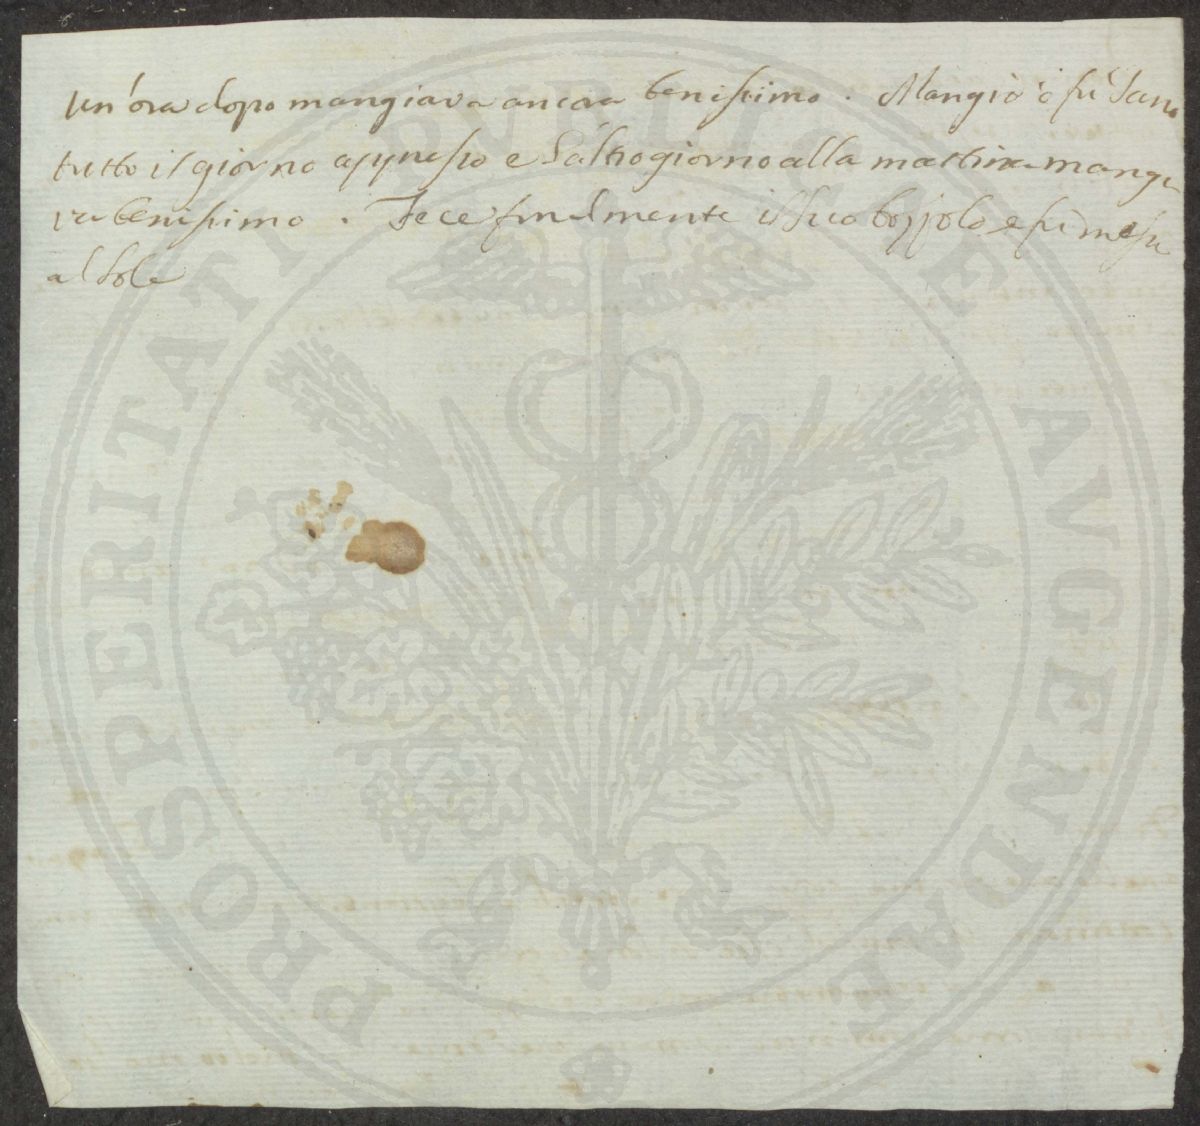 un'ora dopo mangiava ancora benissimo. Mangiò e fù sano
tutto il giorno appresso e l'altro giorno alla mattina mangi
va benissimo. Fece finalmente il suo bozzolo e fù messo
al sole
PROSPERITATI PVBLICAE AVGENDAE